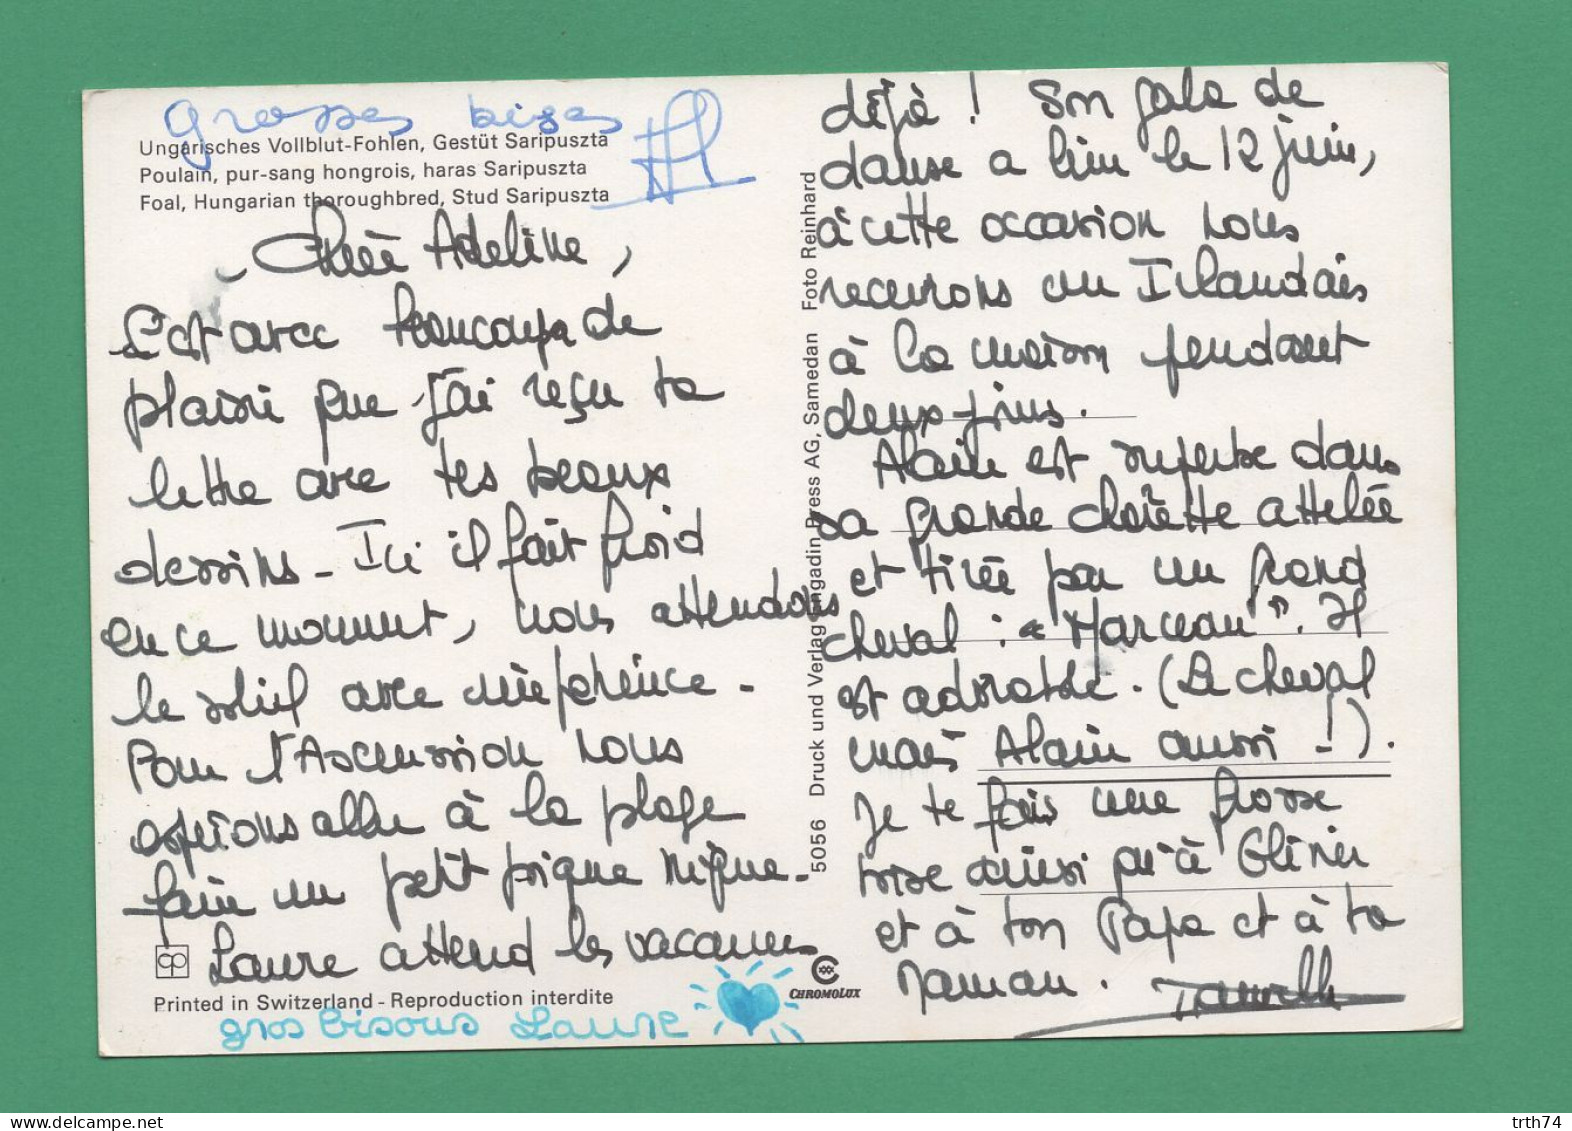 grosses bises
Ungarisches Vollblut-Fohlen, Gestüt Saripuszta
Poulain, pur-sang hongrois, haras Saripuszta
Foal, Hungarian thoroughbred, Stud Saripuszta
Chère Adeline,
C'est avec beaucoup de
plaisir que j'ai reçu ta
lettre avec tes beaux
dessins - Ici il fait froid
en ce moment, nous attendons
le soleil avec impatience -
Pour l'Ascension nous
espérons aller à la plage
faire un petit pique nique -
Laure attend les vacances
Printed in Switzerland - Reproduction interdite
gros bisous Laure
5056 Druck und Verlag Engadin Press AG, Samedan Foto Reinhard
CHROMOLUX
déjà ! Son gala de
danse a lieu le 12 juin,
à cette occasion nous
recevrons un Irlandais
à la maison pendant
deux jours.
Alain est superbe dans
sa grande charette attelée
et tirée par un grand
cheval : "Marceau". Il
est adorable. (Le cheval
mais Alain aussi !).
Je te fais une grosse
bise ainsi qu'à Olivier
et à ton Papa et à ta
Maman.
trth74